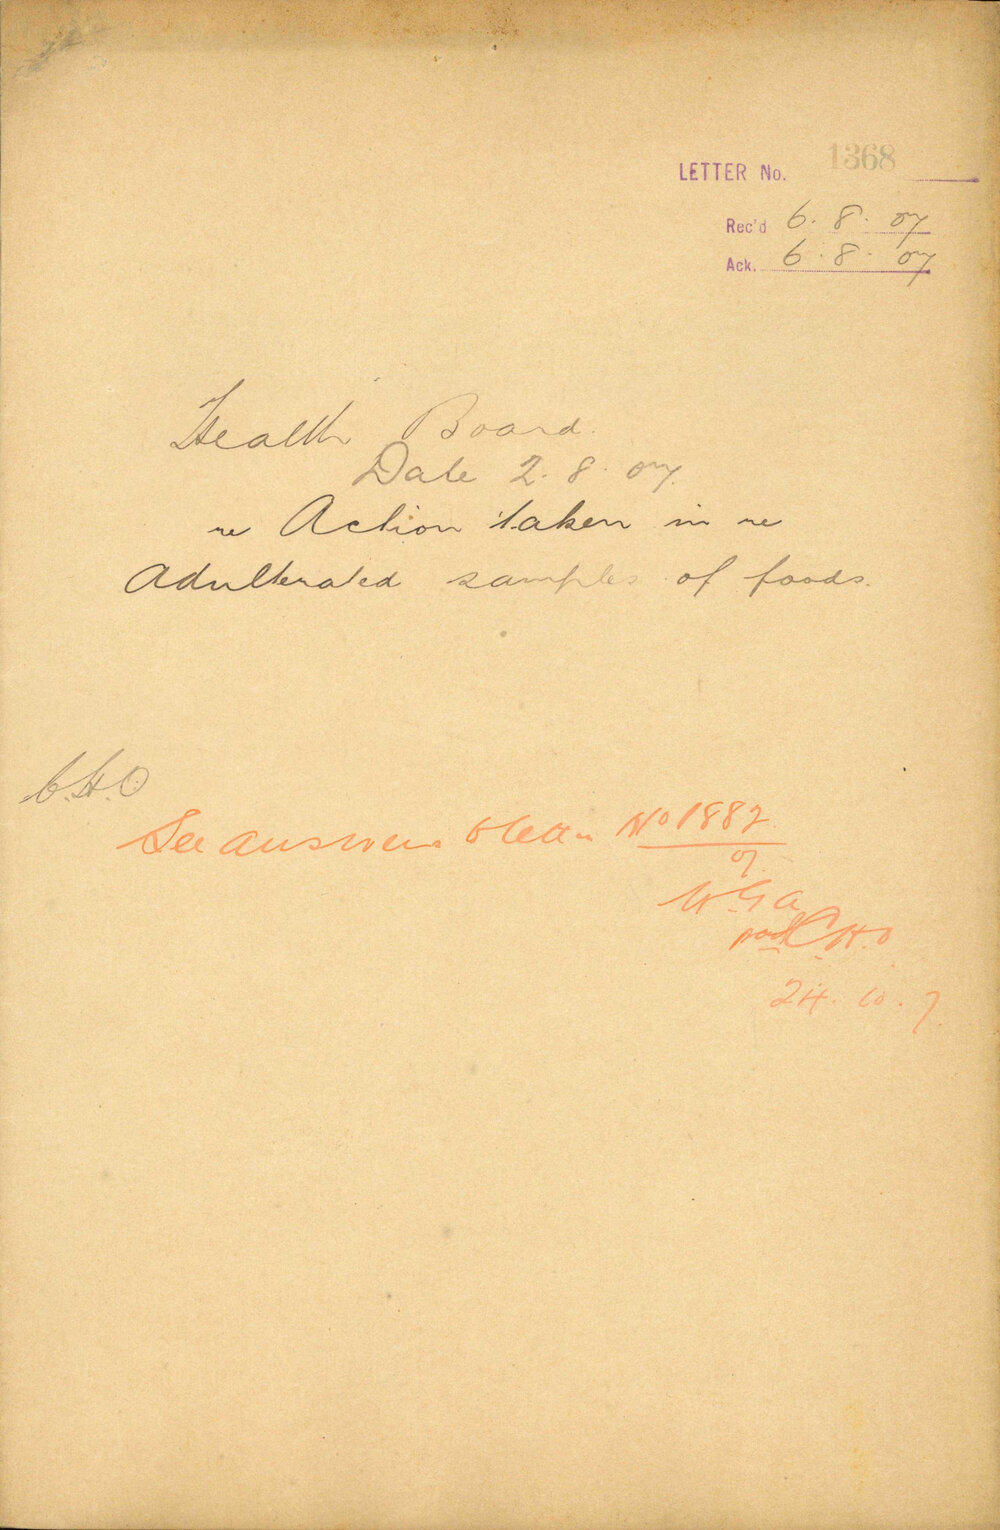 LETTER No. 1368
Rec'd 6. 8. 07
Ack. 6. 8. 07
Health Board.
Date 2. 8. 07.
re Action taken in re
Adulterated samples of foods.
C.H.O
See answer to letter No 1882
07
W G A
C H O
24. 10. 7